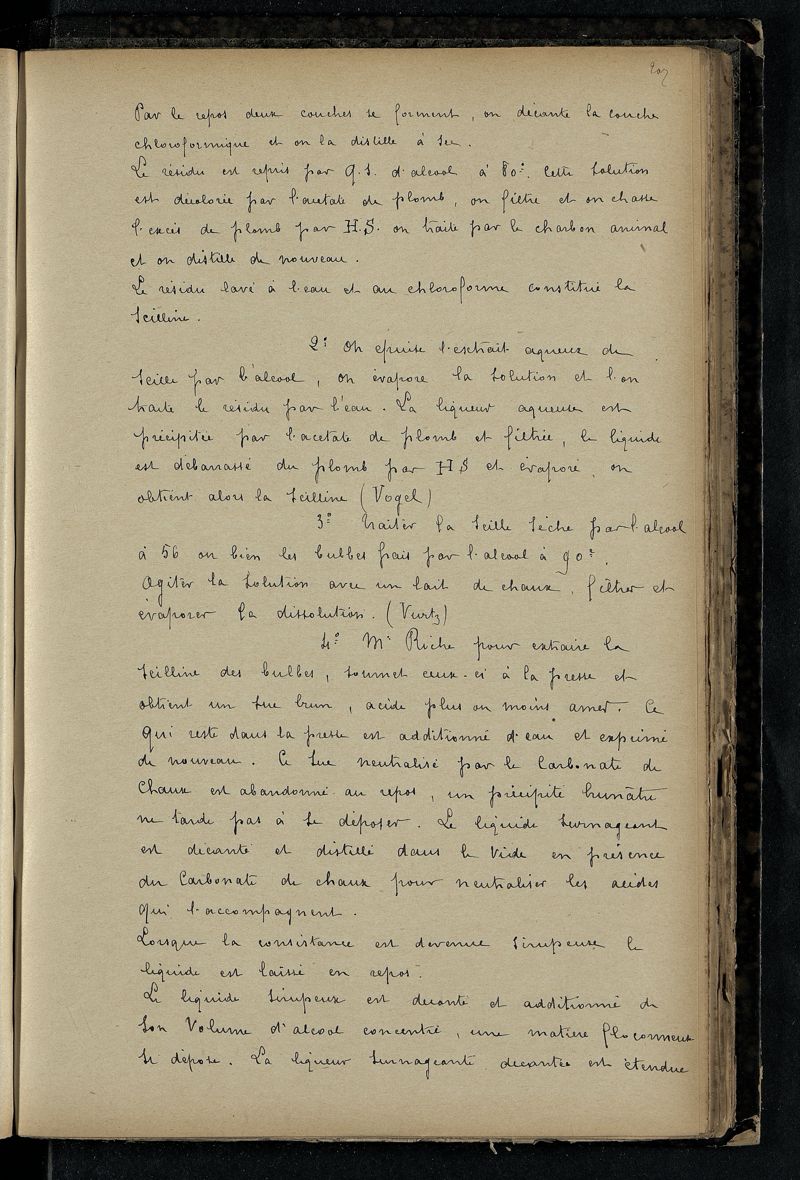 207
Par le repos deux couches se forment, on décante la couche
chloroformique et on la distille à sec.
Le résidu est repris par Q.S. d'alcool à 80°. Cette solution
est décolorée par l'acétate de plomb, on filtre et on chasse
l'excès de plomb par H.S. on traite par le charbon animal
et on distille de nouveau.
Le résidu lavé à l'eau et au chloroforme constitue la
Scilline.
2° On épuise l'extrait aqueux de
Scille par l'alcool, on évapore la solution et l'on
traite le résidu par l'eau. La liqueur aqueuse est
précipitée par l'acetate de plomb et filtrée, le liquide
est débarrassé du plomb par HS et évaporé, on
obtient alors la Scilline (Vogel)
3° Traiter la Scille Sèche par l'alcool
à 56 ou bien les bulbes frais par l'alcool à 90°.
Agiter la solution avec un lait de chaux, filtrer et
évaporer la dissolution. (Vurtz)
4° Mr Riche pour extraire la
Scilline des bulbes, soumet ceux-ci à la presse et
obtient un suc brun, acide plus ou moins amer. Ce
qui reste dans la presse est additionné d'eau et exprimé
de nouveau. Ce suc neutralisé par le Carbonate de
Chaux est abandonné au repos, un précipité brunâtre
ne tarde pas à se déposer. Le liquide surnageant
est décanté et distillé dans le vide en présence
du Carbonate de chaux pour neutraliser les acides
qui l'accompagnent.
Lorsque la consistance est devenue sirupeuse le
liquide est laissé en repos.
Le liquide sirupeux est décanté et additionné de
son volume d'alcool concentré, une matière floconneuse
se dépose. La liqueur surnageante décantée est étendue